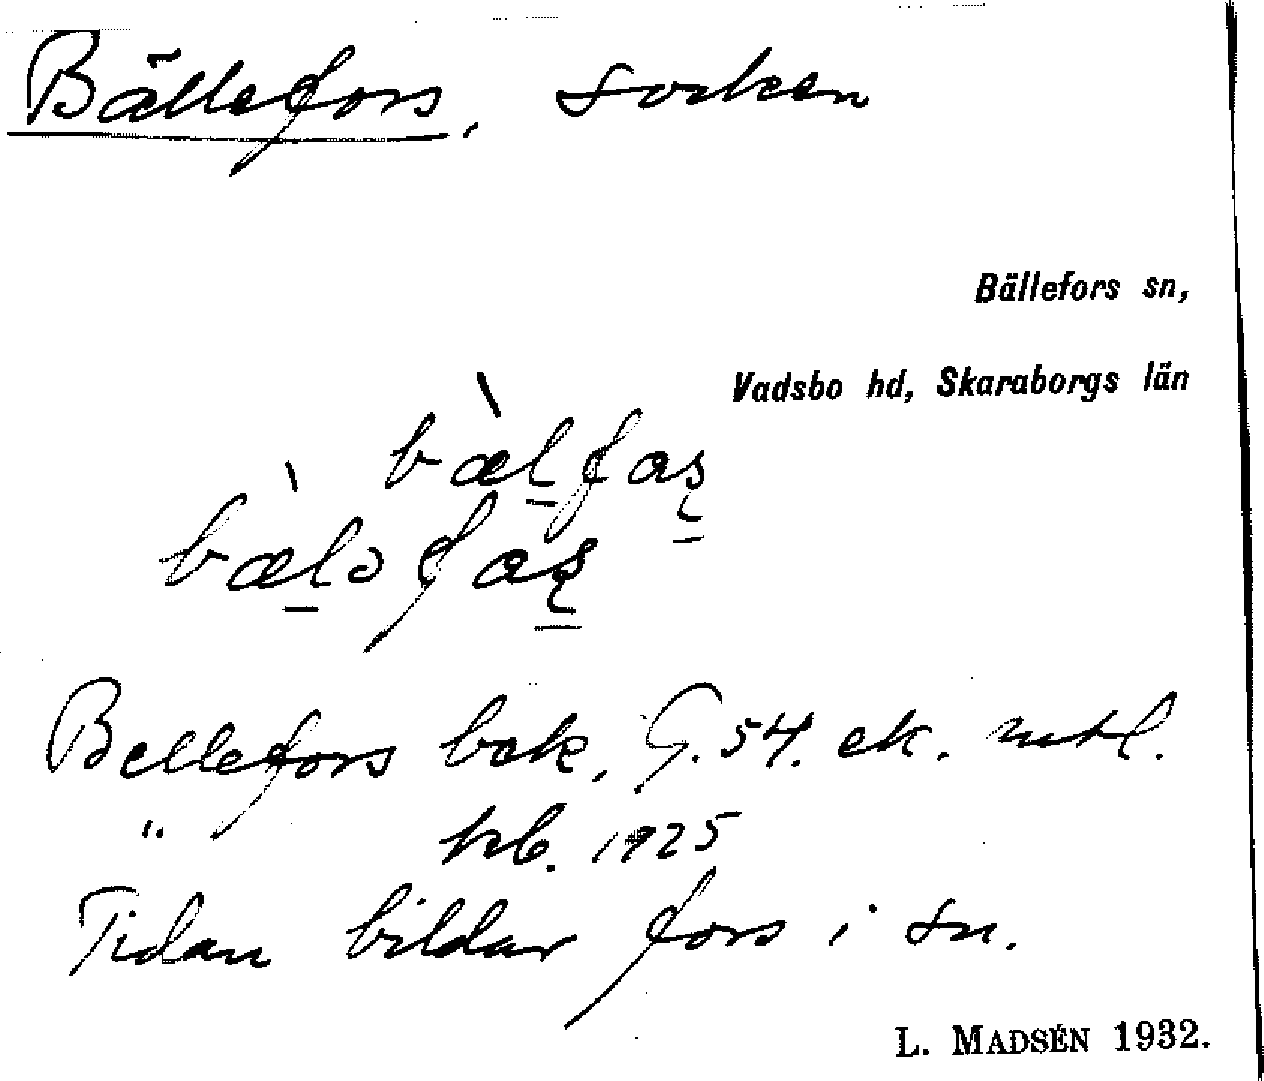 Bällefors, socken
Bällefors sn,
Vadsbo hd, Skaraborgs län
bæ̀l̠faʂ̠
bæ̀l̠ɔfaʂ̠
Bellefors bek. G. 54. ek. mtl.
" kb. 1925
Tidan bildar fors i sn.
L. MADSÉN 1932.